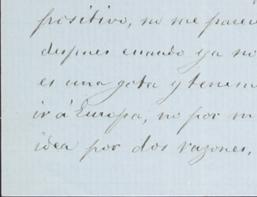 positivo, no me parece
despues cuando ya no
es una gota y tenem
ir á Europa, no por m
idea por dos razones,